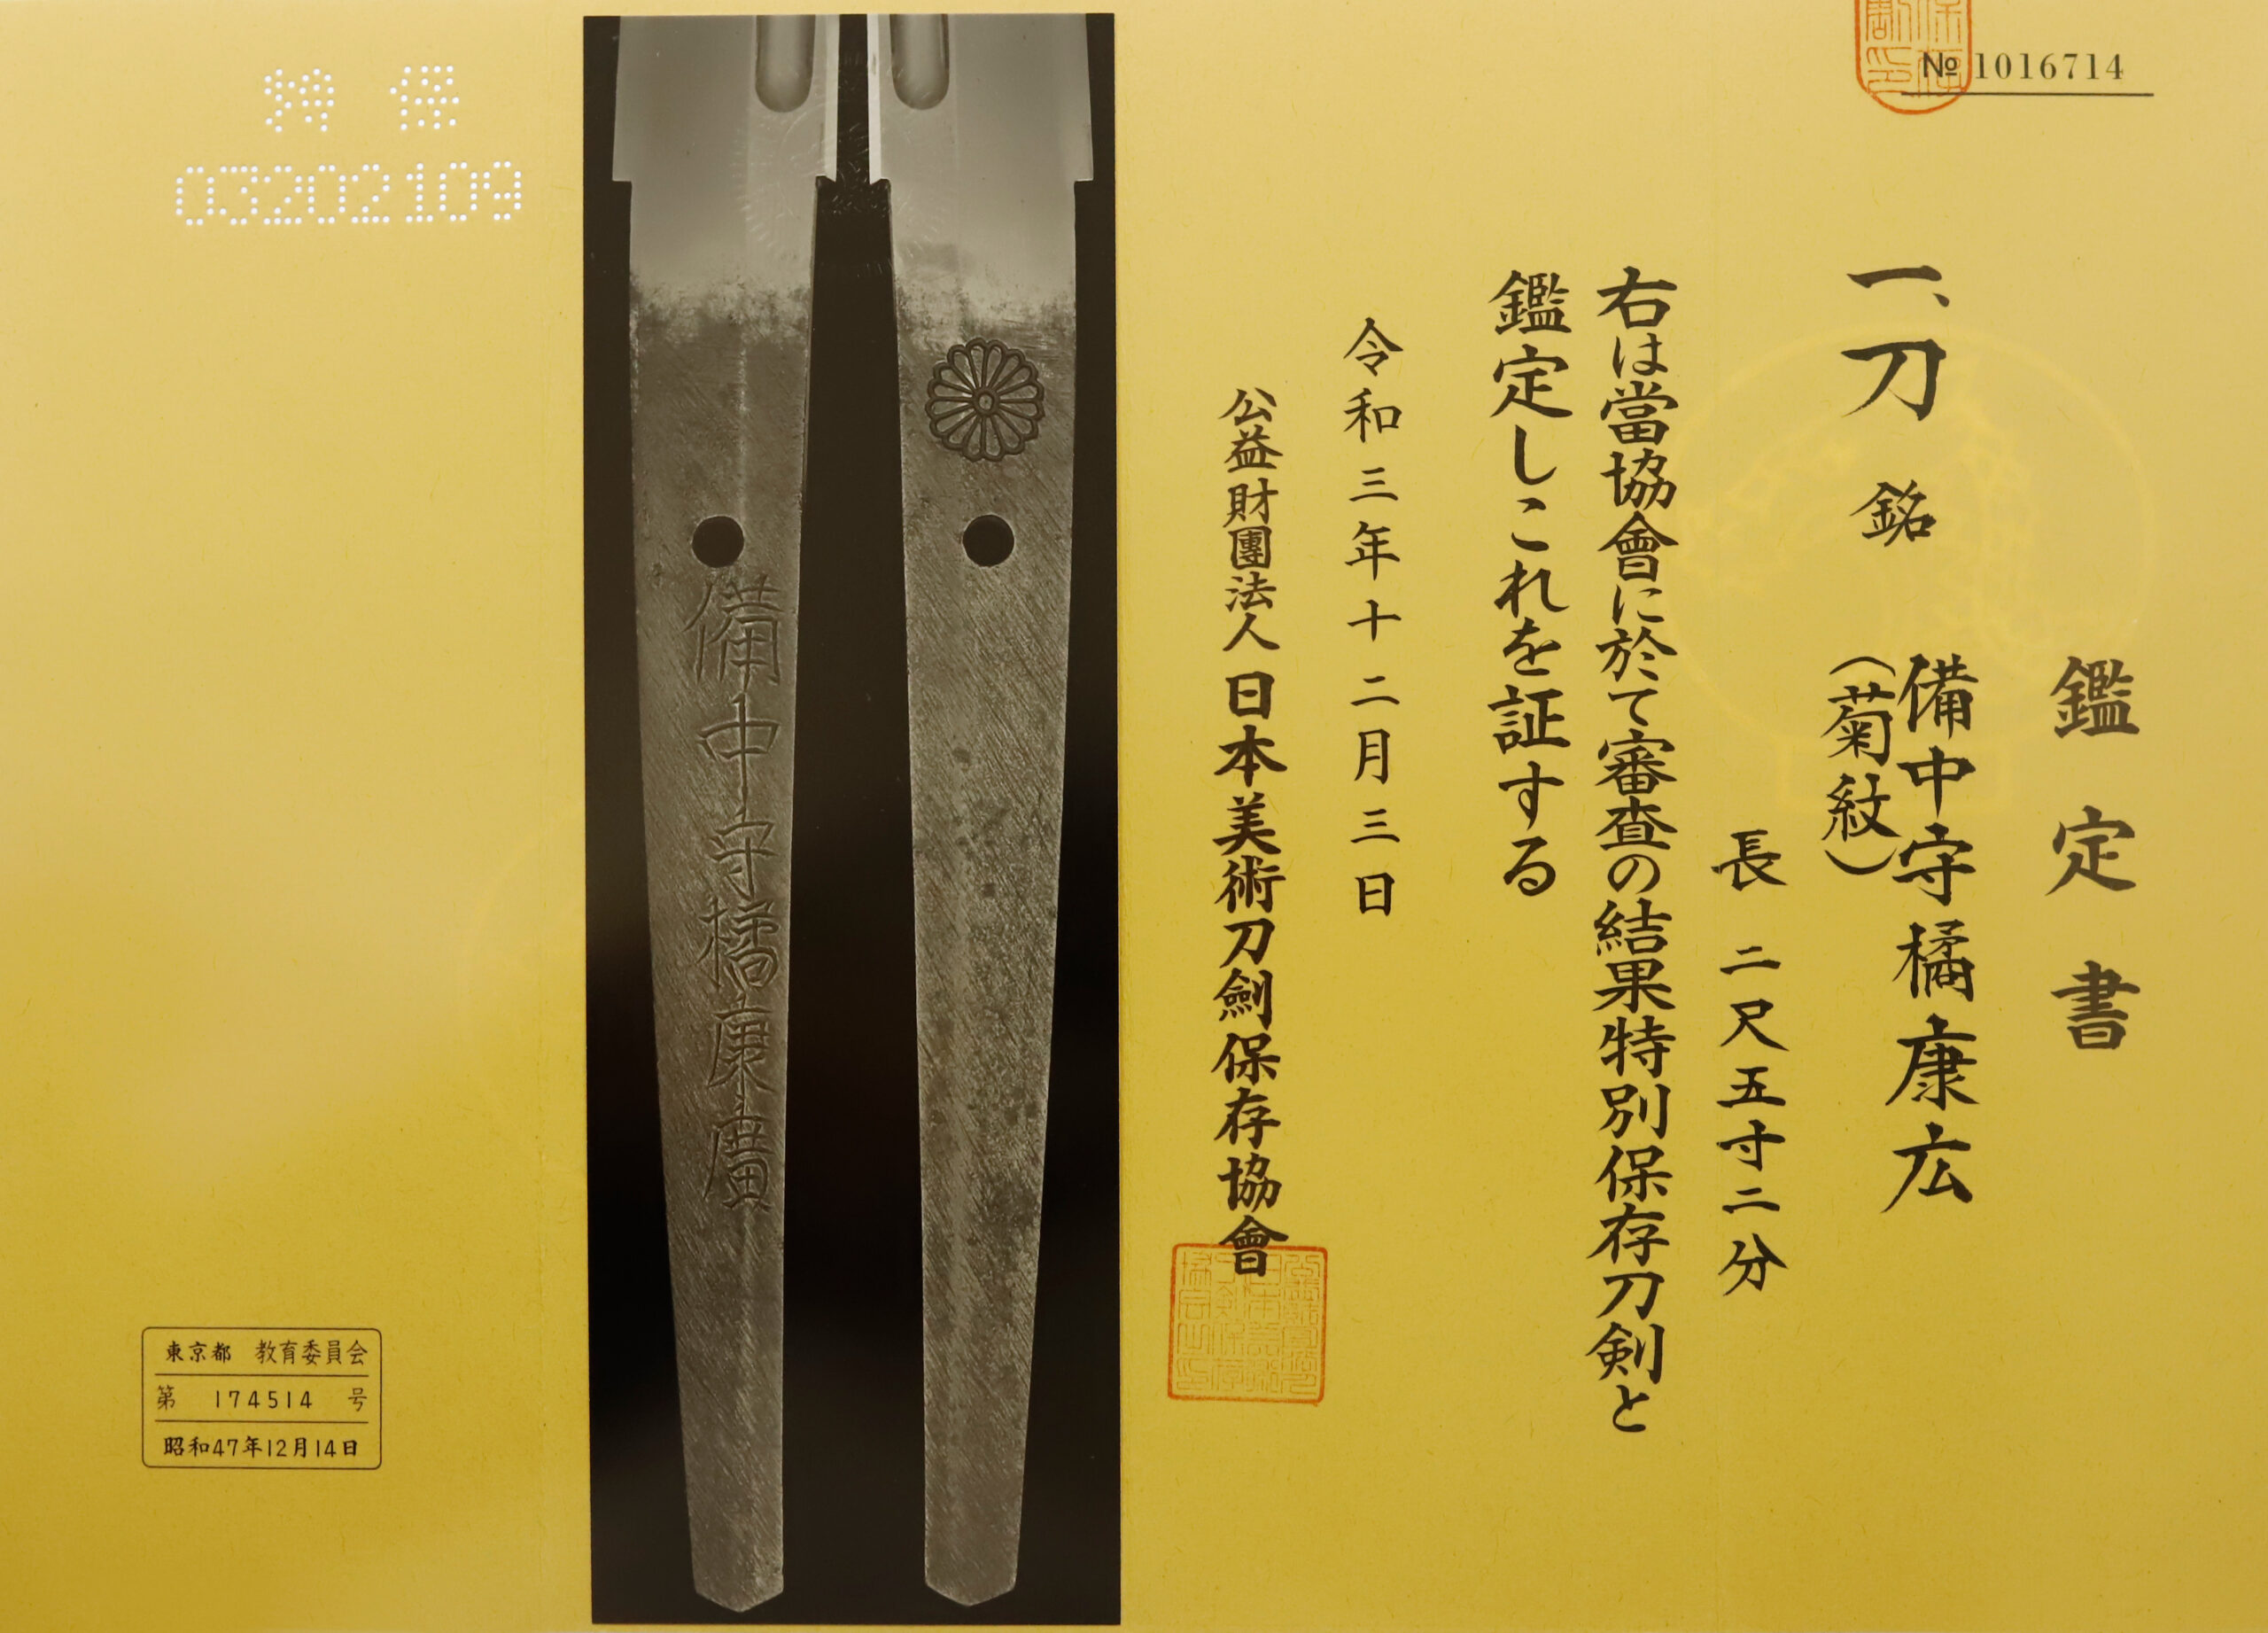 № 1016714
鑑定書
一、刀 銘 備中守橘康広
（菊紋）
長 二尺五寸二分
右は當協會に於て審査の結果特別保存刀剣と
鑑定しこれを証する
令和三年十二月三日
公益財團法人 日本美術刀劍保存協會
備中守橘康廣
特保
03202109
東京都 教育委員会
第 174514 号
昭和47年12月14日